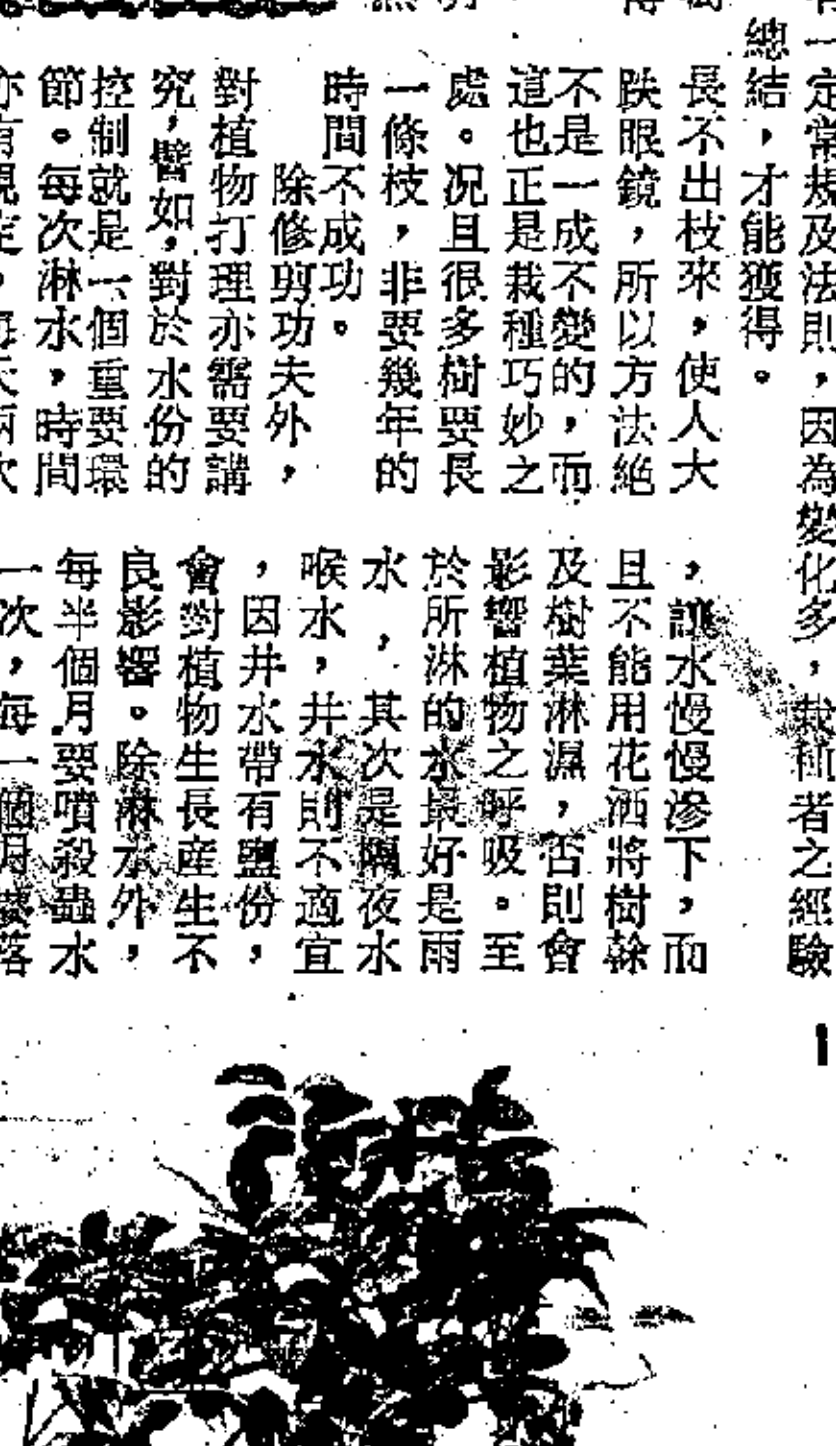 一定常規及法則，因為變化多，栽種者之經驗
總結，才能獲得。
長不出枝來，使人大
跌眼鏡，所以方法絕
不是一成不變的，而
這也正是栽種巧妙之
處。况且很多樹要長
一條枝，非要幾年的
時間不成功。
除修剪功夫外，
對植物打理亦需要講
究，譬如，對於水份的
控制就是一個重要環
節。每次淋水，時間
亦有規定，每天兩次
，讓水慢慢滲下，而
且不能用花洒將樹幹
及樹葉淋濕，否則會
影響植物之呼吸。至
於所淋的水最好是雨
水，其次是隔夜水
喉水，井水則不適宜
，因井水帶有鹽份，
會對植物生長産生不
良影響。除淋水外，
每半個月要噴殺蟲水
一次，每一個月要落